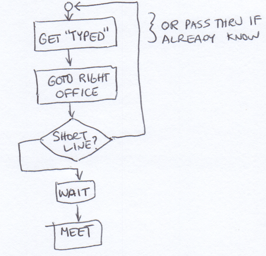 GET "TYPED"
OR PASS THRU IF
ALREADY KNOW
GOTO RIGHT
OFFICE
SHORT
LINE?
WAIT
MEET